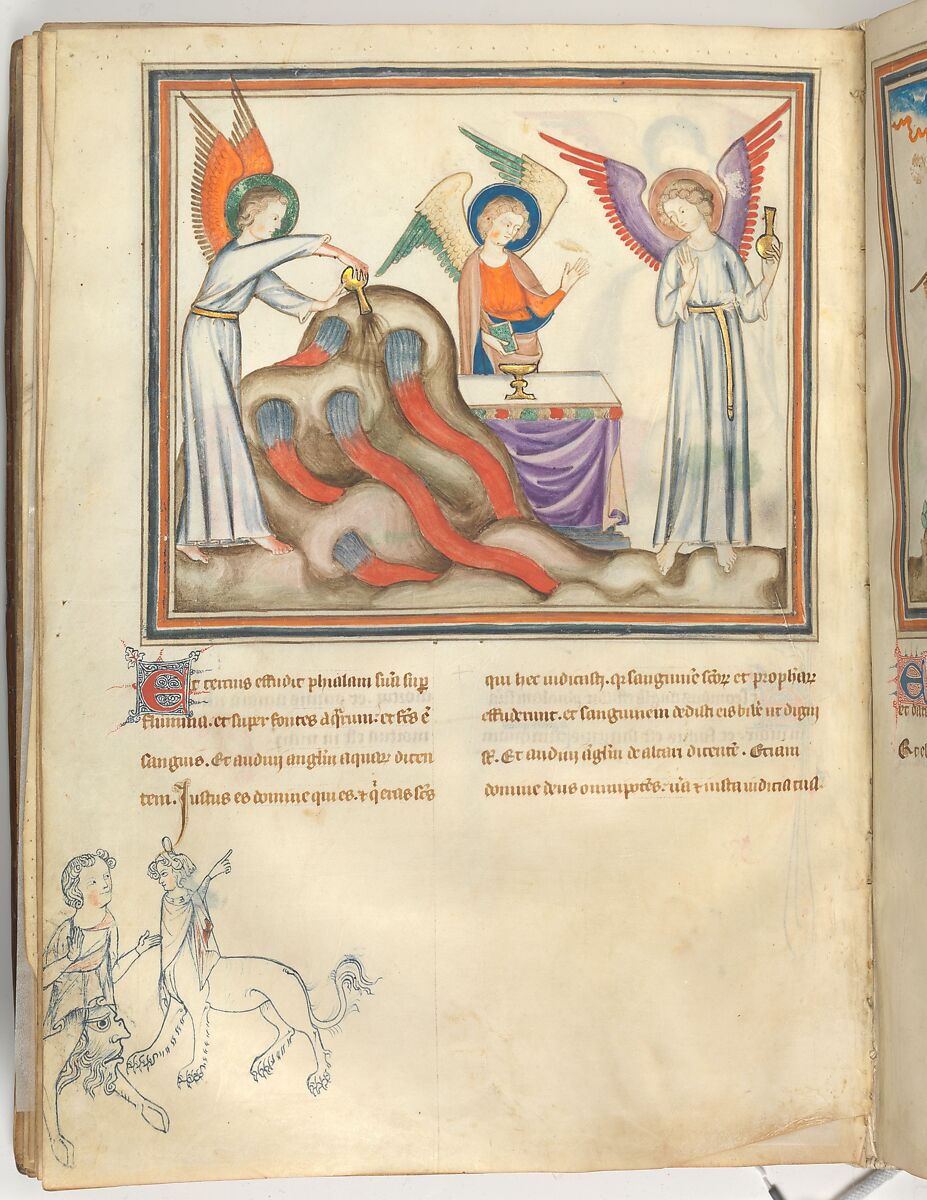 Et tercius effudit phialam suā sup̄
flumina. et super fontes aq̄rum. et fc̄s ē
sanguis. Et audiui angl̄m aquar̄ dicen
tem. Justus es domine qui es. ⁊ q̄ eras sc̄s
qui hec iudicasti. qr̄ sanguinē sc̄oꝝ et prophar̄
effuderunt. et sanguinem dedisti eis bib̄e ut digni
st̄. Et audiui āgl̄m de altari dicentē. Etiam
domine deus omnipotēs. uā ⁊ iusta iudicia tua.